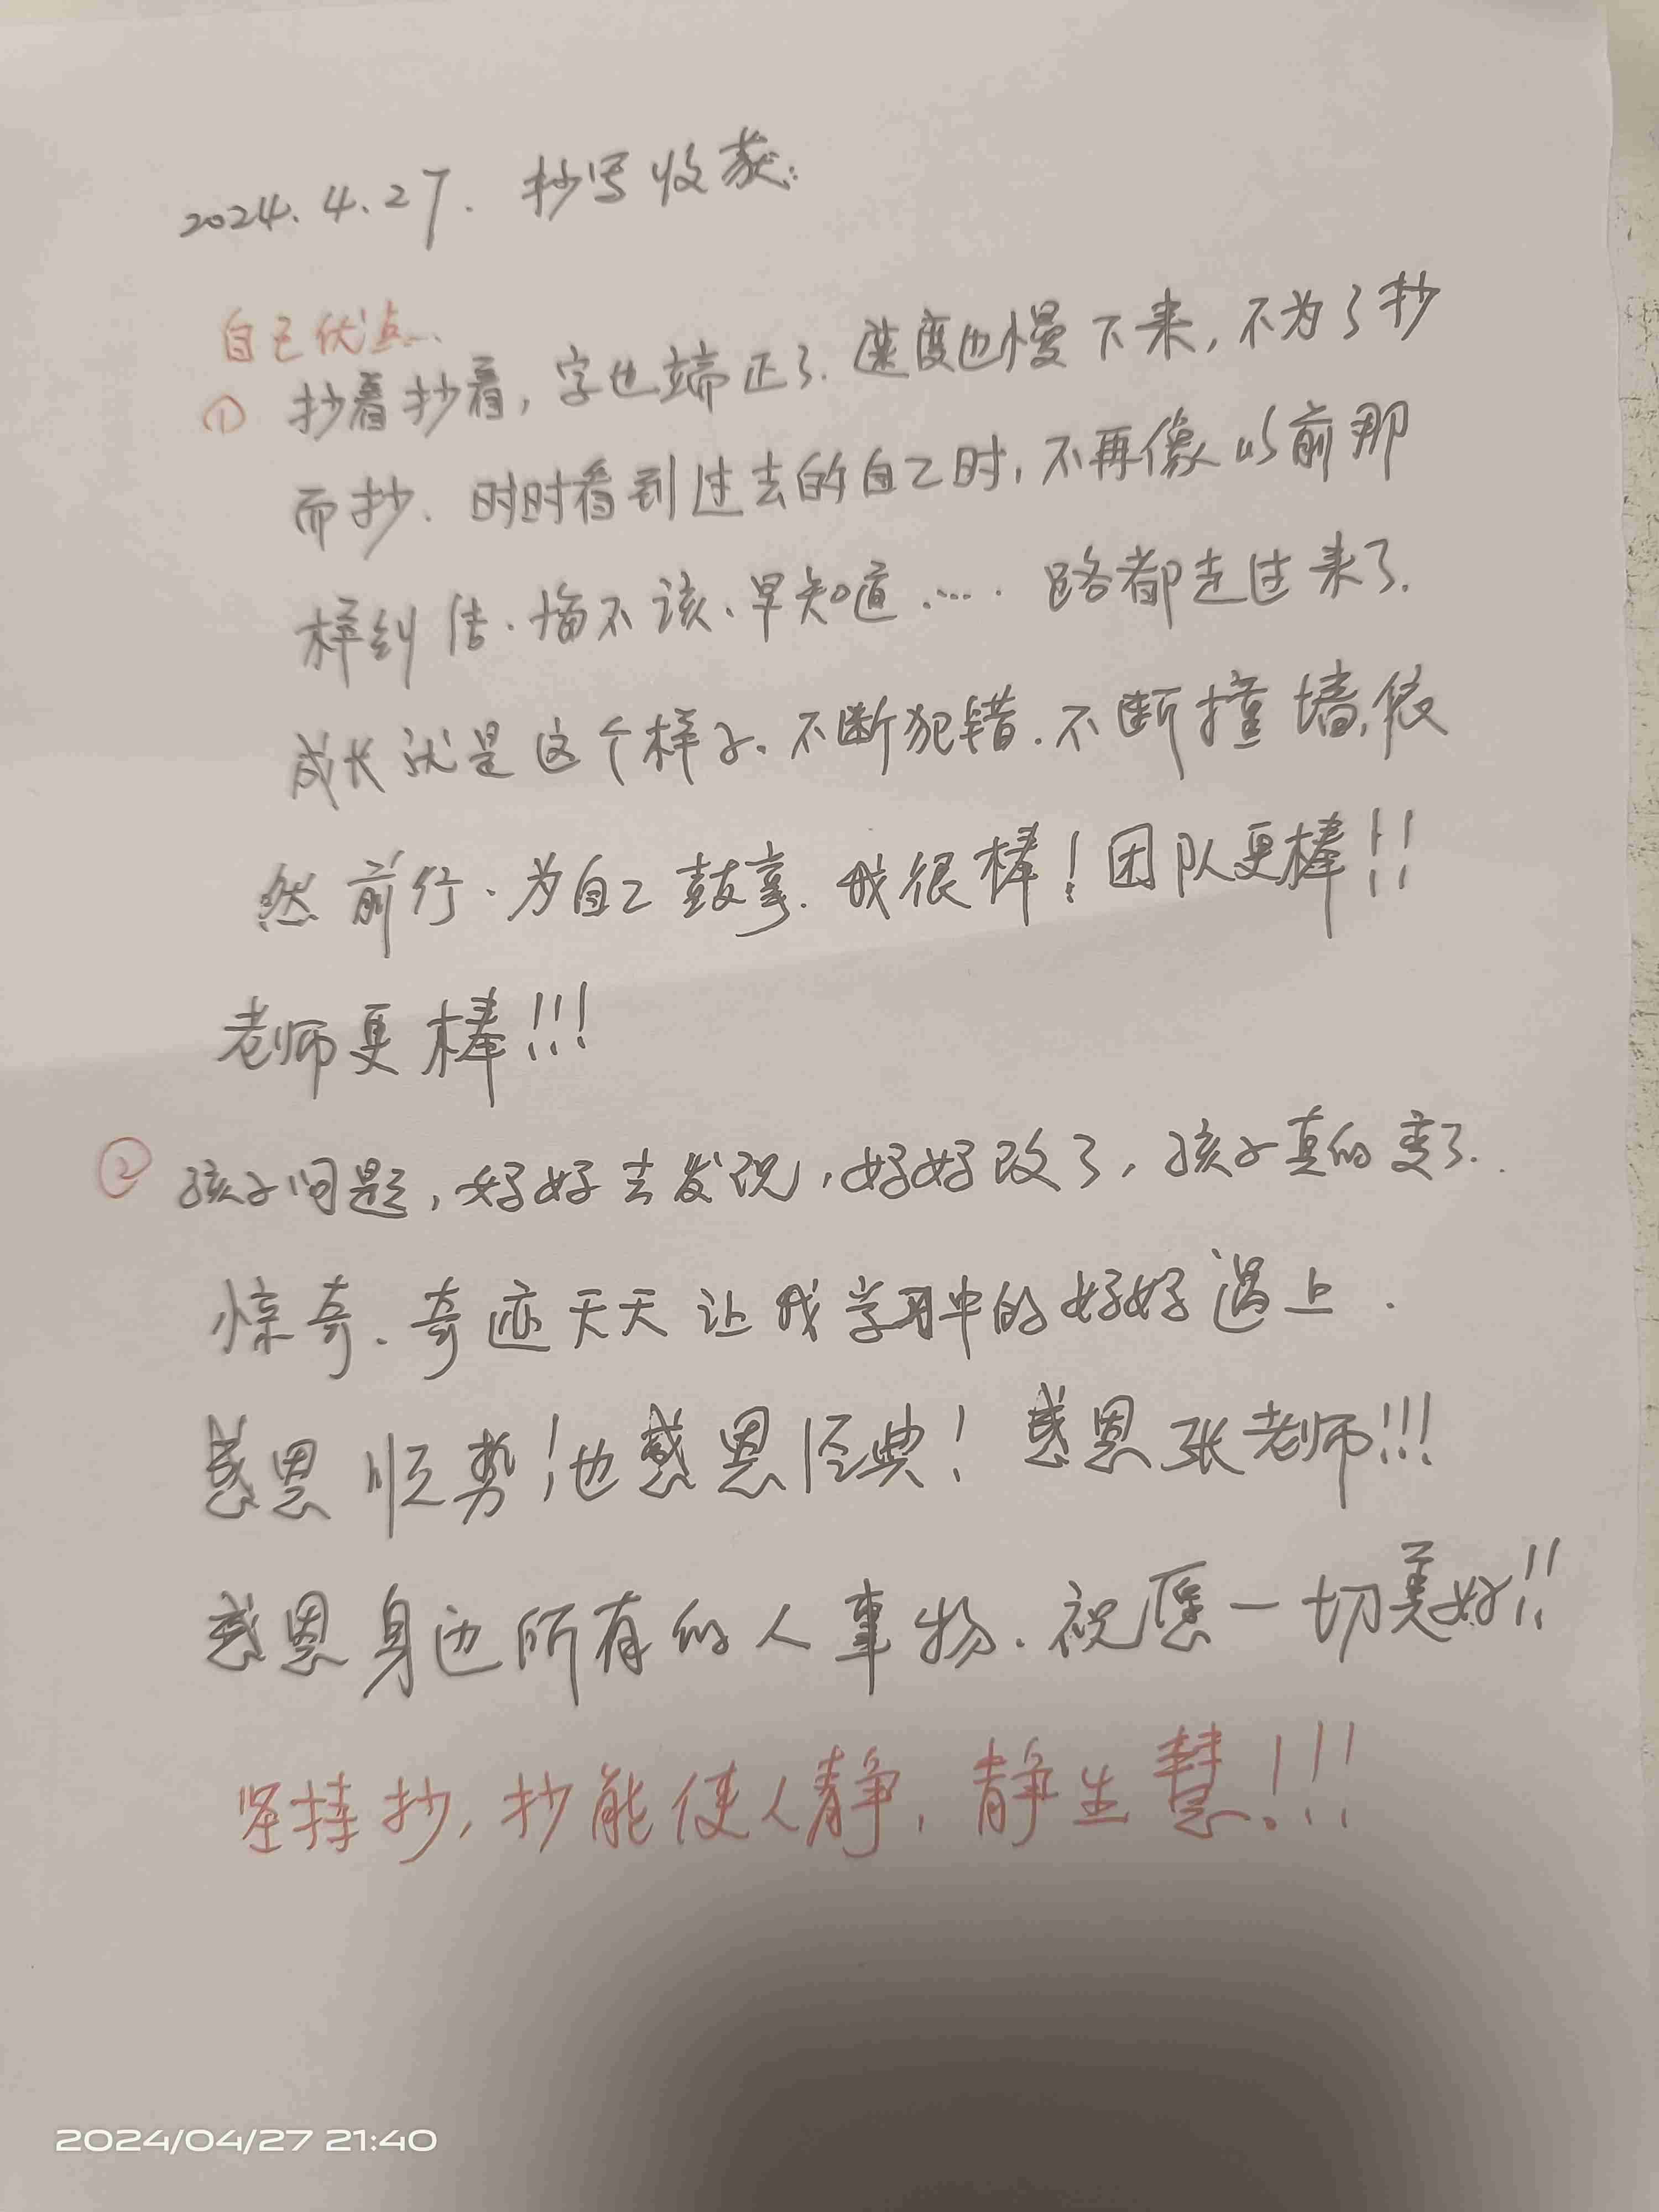 2024.4.27. 抄写收获:
自己优点、
① 抄着抄着,字也端正了.速度也慢下来,不为了抄
而抄.时时看到过去的自己时,不再像以前那
样纠结.悔不该、早知道.…. 路都走过来了.
成长就是这个样子.不断犯错.不断撞墙,依
然前行.为自己鼓掌.我很棒!团队更棒!!
老师更棒!!!
② 孩子问题,好好去发现,好好改了,孩子真的变了..
惊奇.奇迹天天让我学习中的好好遇上.
感恩顺势!也感恩经典!感恩张老师!!!
感恩身边所有的人事物.祝愿一切美好!!
坚持抄,抄能使人静,静生慧!!!
2024/04/27 21:40